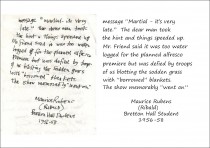 message "Martial - it's very
late." The dear man took
the hint and things speeded up.
Mr. Friend said it was too water
logged for the planned alfresco
premiere but was defied by droops
of us blotting the sodden grass
with "borrowed" blankets.
The show memorably "went on"
Maurice Rubens
(Ribald)
Bretton Hall Student
1956-58
message "Martial - it's very
late." The dear man took
the hint and things speeded up.
Mr. Friend said it was too water
logged for the planned alfresco
premiere but was defied by troops
of us blotting the sodden grass
with "borrowed" blankets.
The show memorably "went on"
Maurice Rubens
(Ribald)
Bretton Hall Student
1956-58